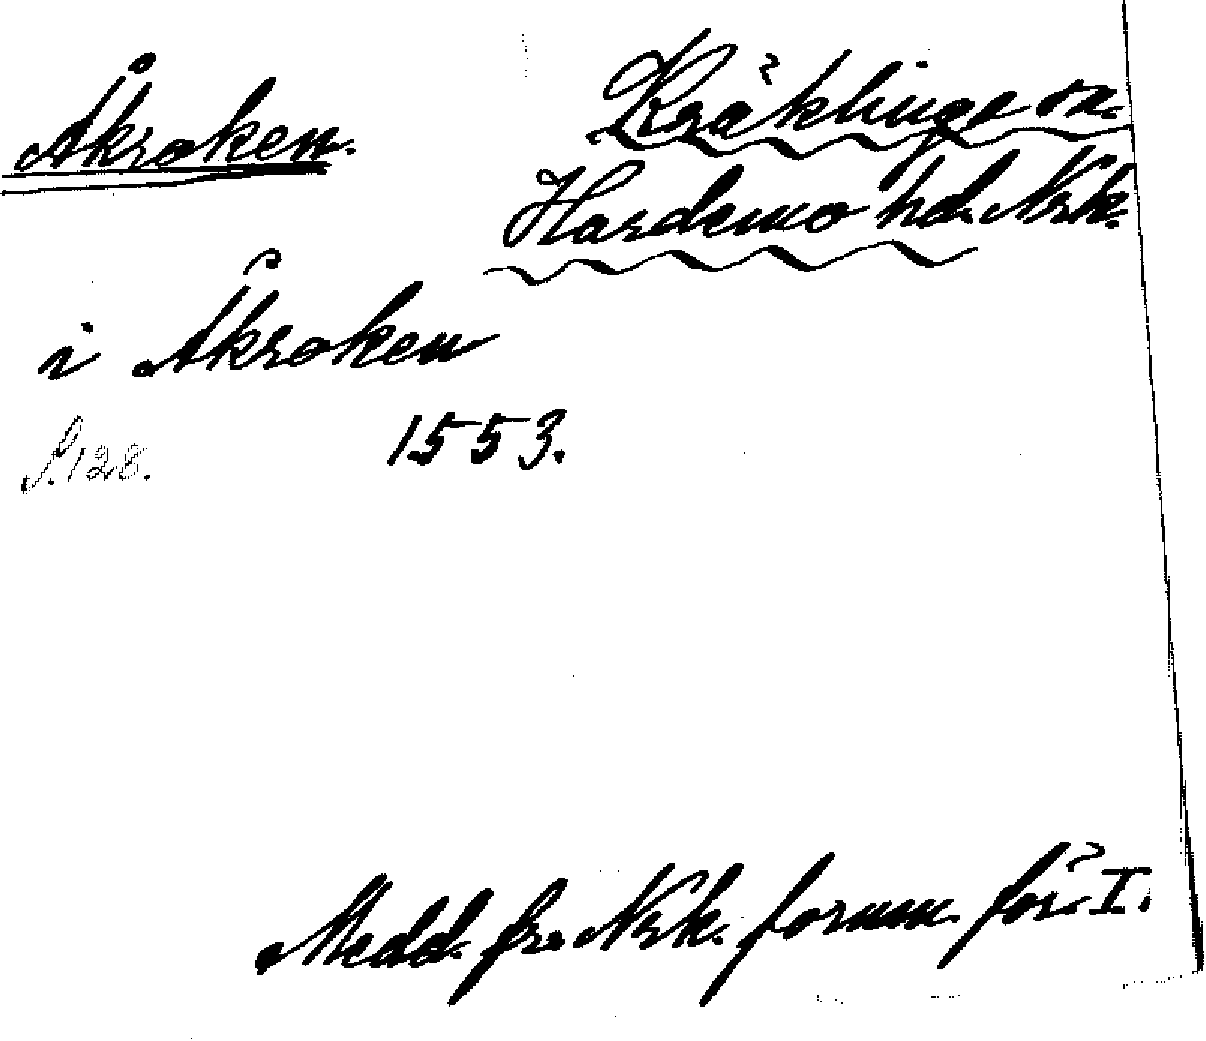 Åkroken.
Kräklinge sn.
Hardemo hd. Nrk.
i Åkroken
1553.
S. 128.
Medd. fr. Nrk. fornm. för. I.